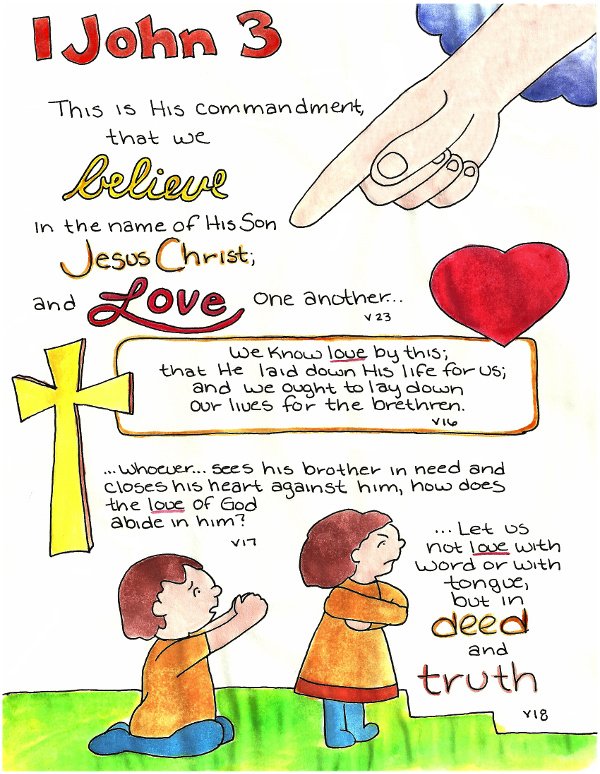 1 John 3
This is His commandment,
that we
believe
in the name of His Son
Jesus Christ;
and Love one another...
v23
We know love by this;
that He laid down His life for us;
and we ought to lay down
our lives for the brethren.
v16
...whoever... sees his brother in need and
closes his heart against him, how does
the love of God
abide in him?
v17
...Let us
not love with
word or with
tongue,
but in
deed
and
truth
v18